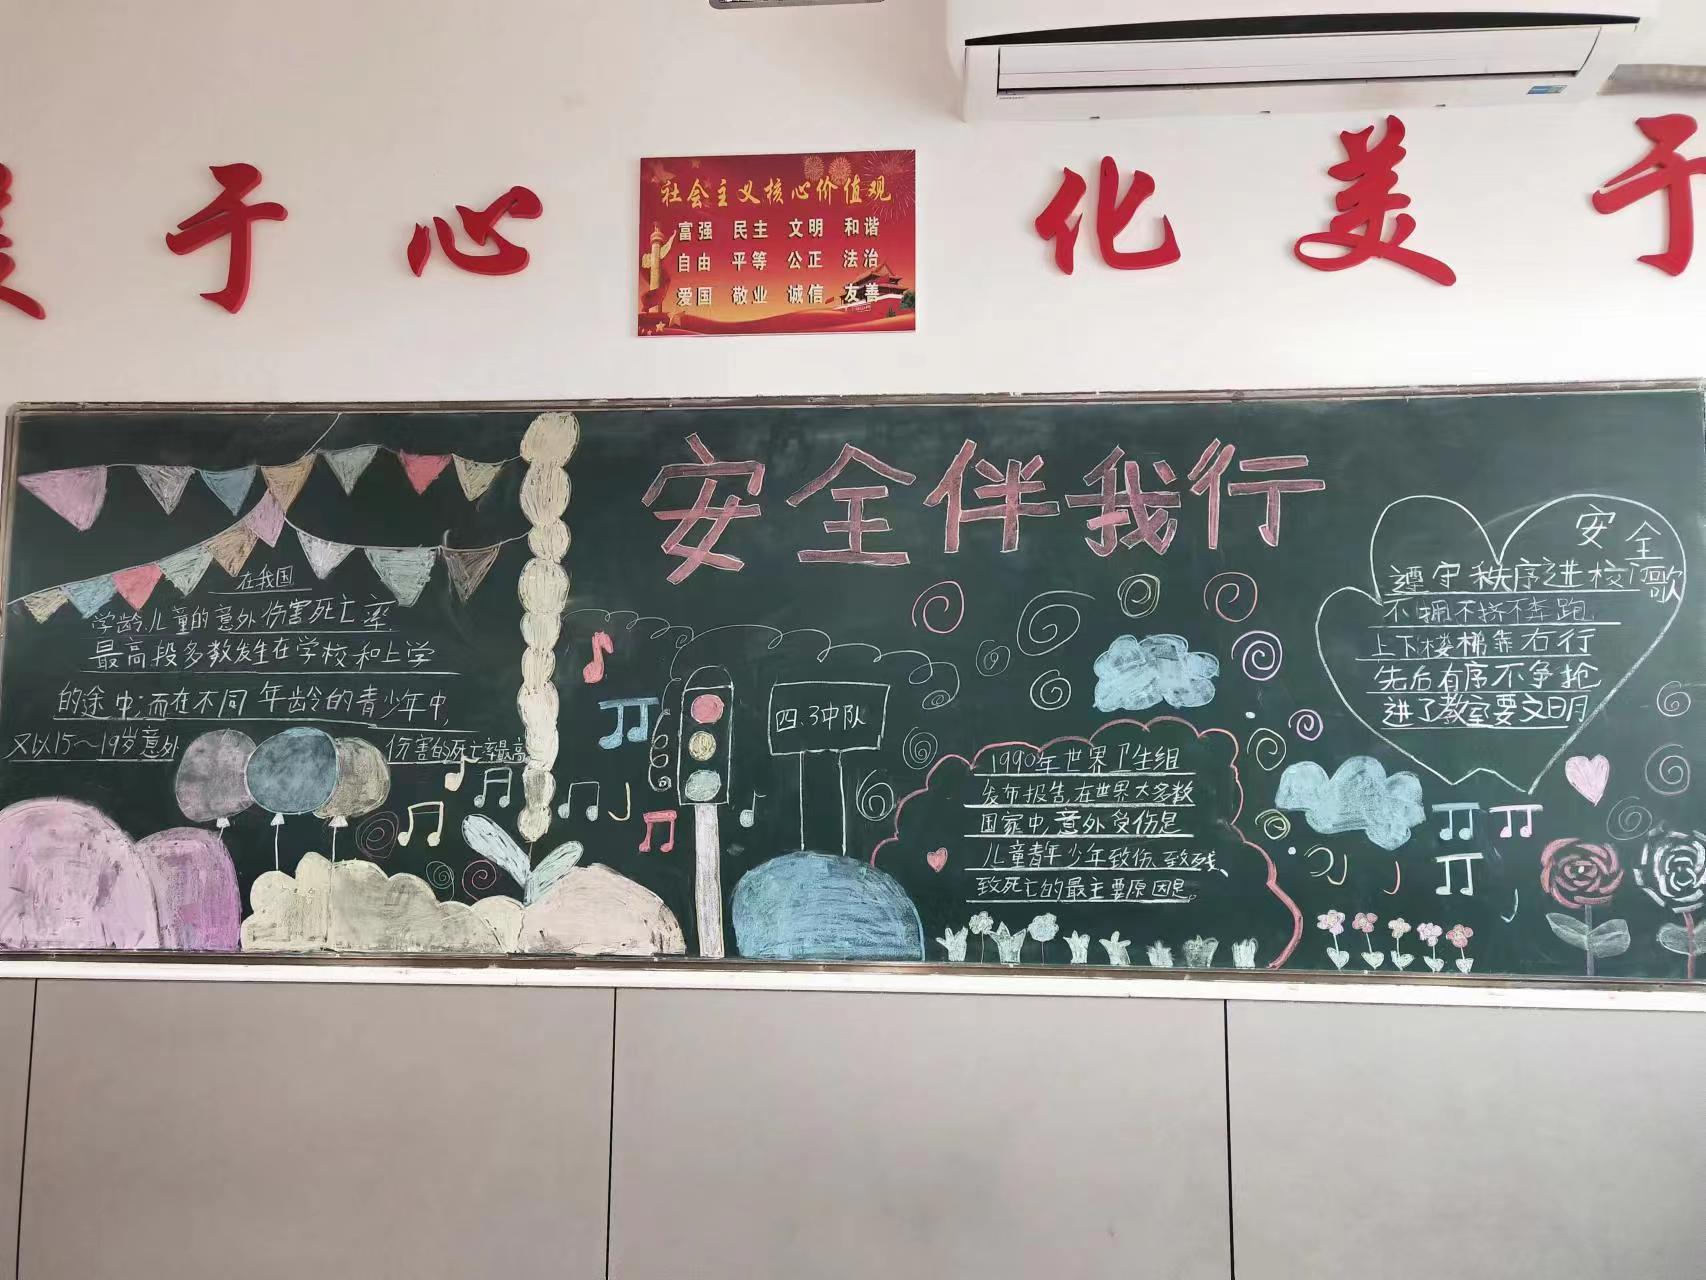 于心
化美于
社会主义核心价值观
富强 民主 文明 和谐
自由 平等 公正 法治
爱国 敬业 诚信 友善
安全伴我行
在我国
学龄儿童的意外伤害死亡率
最高段多数发生在学校和上学
的途中;而在不同年龄的青少年中,
又以15~19岁意外 伤害的死亡率最高
四.3中队
1990年世界卫生组
发布报告,在世界大多数
国家中,意外受伤是
儿童青年少年致伤、致残、
致死亡的最主要原因是。
安全歌
遵守秩序进校门
不拥不挤不奔跑
上下楼梯靠右行
先后有序不争抢
进了教室要文明